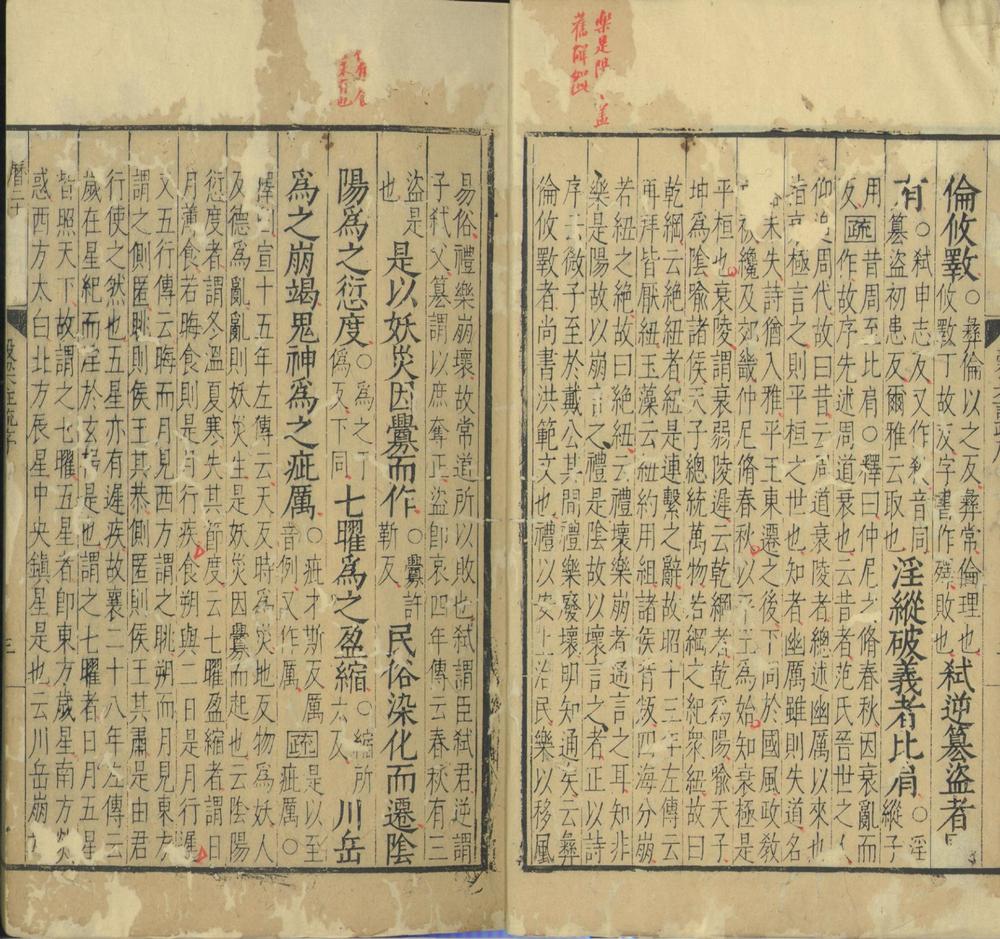 倫攸斁○彝倫以之反彝常倫理也弑逆篡盜者
攸斁丁故反字書作殬敗也
○弑申志反又作殺音同
篡盜初患反爾雅云取也淫縱破義者比肩○淫縱子
用昔周至比肩○釋曰仲尼之脩春秋因衰亂而
反疏作故序先述周道衰也云昔者范氏晉世之人
仰追周代故曰昔云周道衰陵者總述幽厲以來也
指衰極言之則平桓之世也知者幽厲雖則失道名
未失詩猶入雅平王東遷之後下同於國風政教
纔及郊畿仲尼脩春秋以平王為始知衰極是
平桓也衰陵謂衰弱陵遲云乾綱者乾為陽喻天子
坤為陰喻諸侯天子總統萬物若綱之紀衆紐故曰
乾綱云絕紐者紐是連繫之辭故昭十三年左傳云
再拜皆厭紐玉藻云紐約用組諸侯背叛四海分崩
若紐之絕故曰絕紐云禮壞樂崩者通言之耳知非
樂是陽故以崩言之禮是陰故以壞言之者正以詩
序云微子至於戴公其間禮樂廢壞明知通矣云彝
倫攸斁者尚書洪範文也禮以安上治民樂以移風
易俗禮樂崩壞故常道所以敗也弑謂臣弑君逆謂
子弑父篡謂以庶奪正盜即哀四年傳云春秋有三
盜是
也是以妖災因釁而作○釁許靳反民俗染化而遷陰
陽為之愆度○為之于偽反下同七曜為之盈縮○縮所六反川岳
為之崩竭鬼神為之疵厲○疵才斯反厲音例又作厲疏是以至疵厲○
釋曰宣十五年左傳云天反時為災地反物為妖人
反德為亂亂則妖災生是妖災因釁而起也云陰陽
愆度者謂冬溫夏寒失其節度云七曜盈縮者謂日
月薄食若晦食則是月行疾食朔與二日是月行遲
又五行傳云晦而月見西方謂之朓朔而月見東方
謂之側匿朓則侯王其荼側匿則侯王其肅是由君
行使之然也五星亦有遲疾故襄二十八年左傳云
歲在星紀而淫於玄枵是也謂之七曜者日月五星
皆照天下故謂之七曜五星者即東方歲星南方熒
惑西方太白北方辰星中央鎮星是也云川岳崩